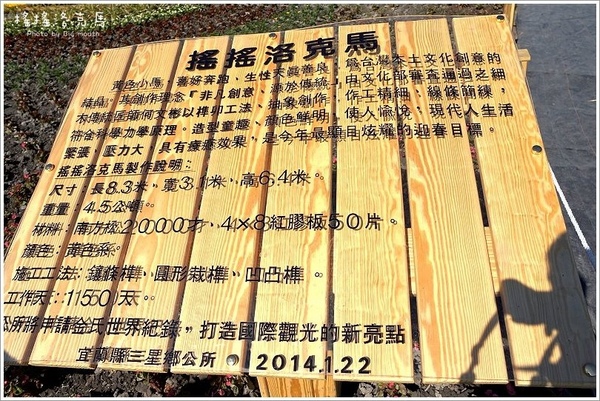 搖搖洛克馬
Photo by Big mouth
搖搖洛克馬
黃色小馬，喜好奔跑、生性天真善良，為台灣本土文化創意的
精品，其創作理念『非凡創意，源於傳統』，由文化部審查通過之細
木傳統匠師何文彬以榫卯工法，抽象創作，作工精細、線條簡練，
符合科學力學原理。造型童趣、顏色鮮明，使人愉悅，現代人生活
緊張，壓力大，具有療癒效果，是今年最顯目炫耀的迎春目標。
搖搖洛克馬製作說明：
尺寸：長8.3米，寬3.1米，高6.4米。
重量：4.5公噸。
材料：南方松20000才，4×8紅膠板50片。
顏色：黃色系。
施工工法：鑲條榫、圓形栽榫、凹凸榫。
工作天：11550天。
公所將申請金氏世界紀錄，打造國際觀光的新亮點
宜蘭縣三星鄉公所 2014.1.22